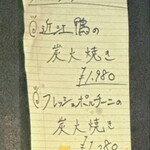 近江鴨の
炭火焼き
¥1,980
フレッシュポルチーニの
炭火焼き
¥1,280